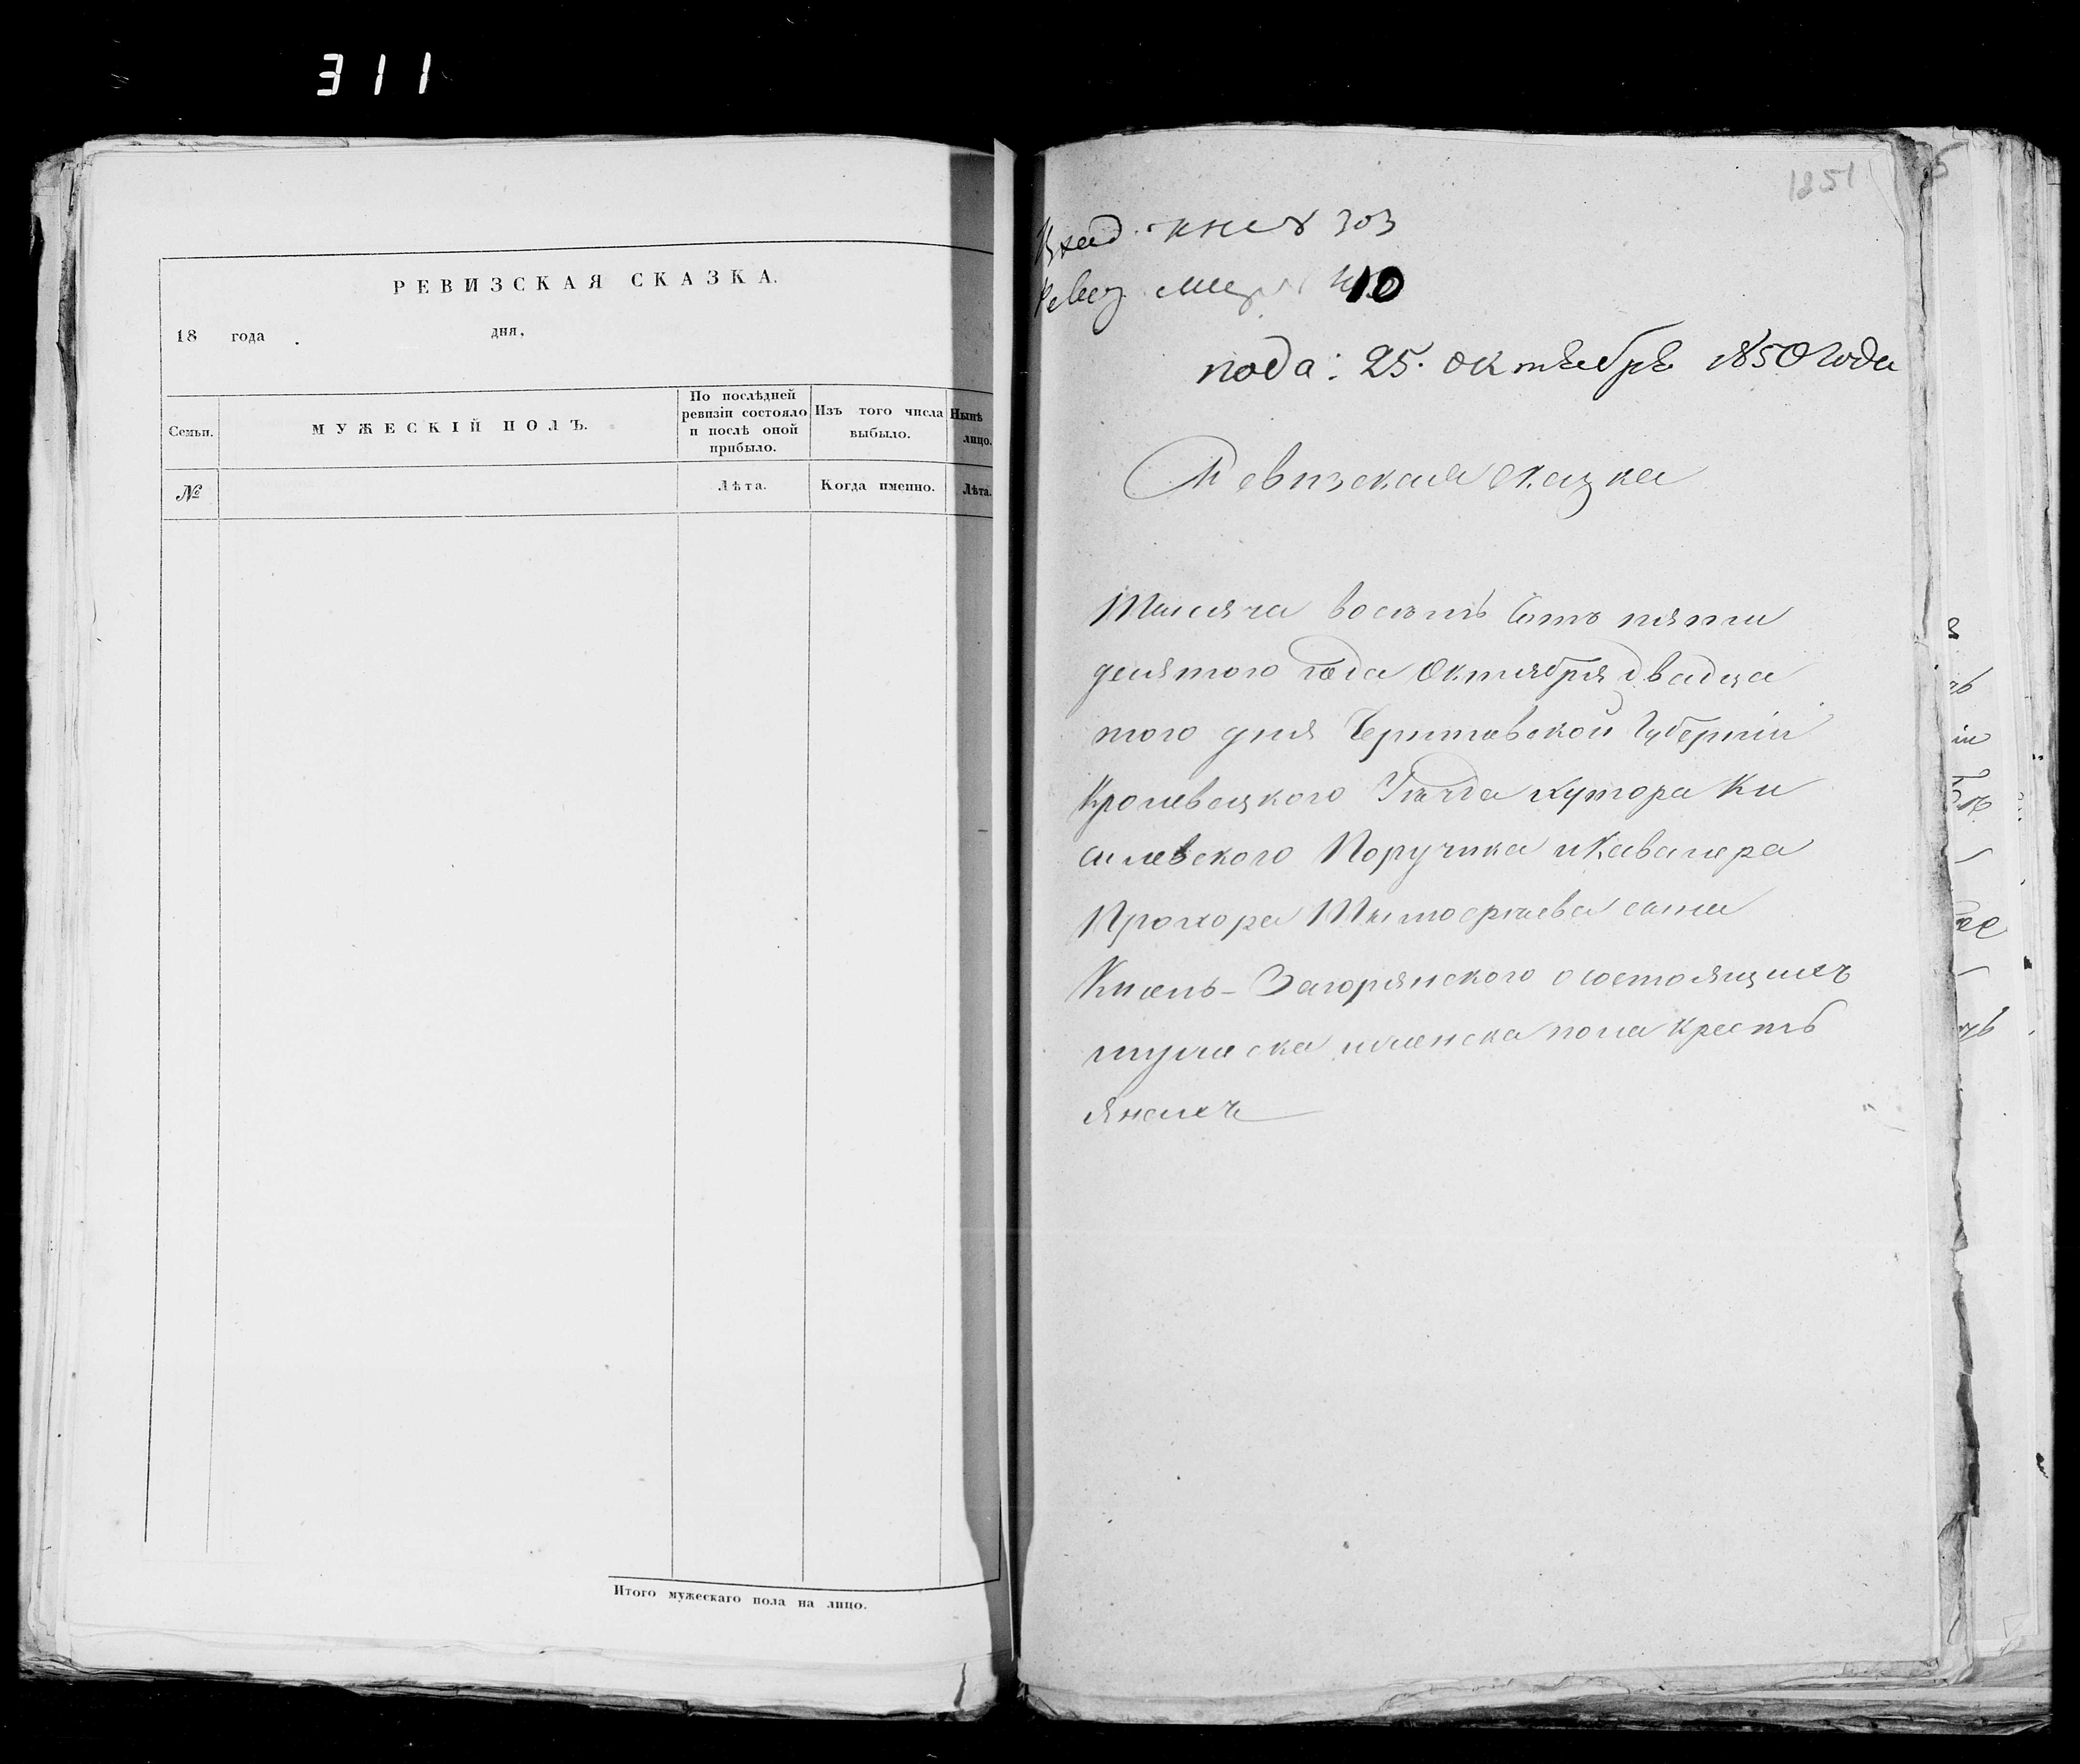 311
РЕВИЗСКАЯ СКАЗКА.
18 года дня,
Семьи.
МУЖЕСКІЙ ПОЛЪ.
По послѣдней
ревизіи состояло
и послѣ оной
прибыло.
Изъ того числа
выбыло.
Нынѣ
лицо.
№
Лѣта.
Когда именно.
Лѣта.
Итого мужескаго пола на лицо.
1251
303
10
пода: 25. октября 1850 года
Ревизская сказка
Тысяча восемъ сотъ пяти
десятого года Октября двадца
того дня Черниговской Губерніи
Кролевецкого Уѣзда хутора Ки
силевского Поручика и Кавалера
Прохора Тимоѳѣева сына
Кисель-Загорянского о состоящихъ
мужеска и женска пола кресть
янахъ